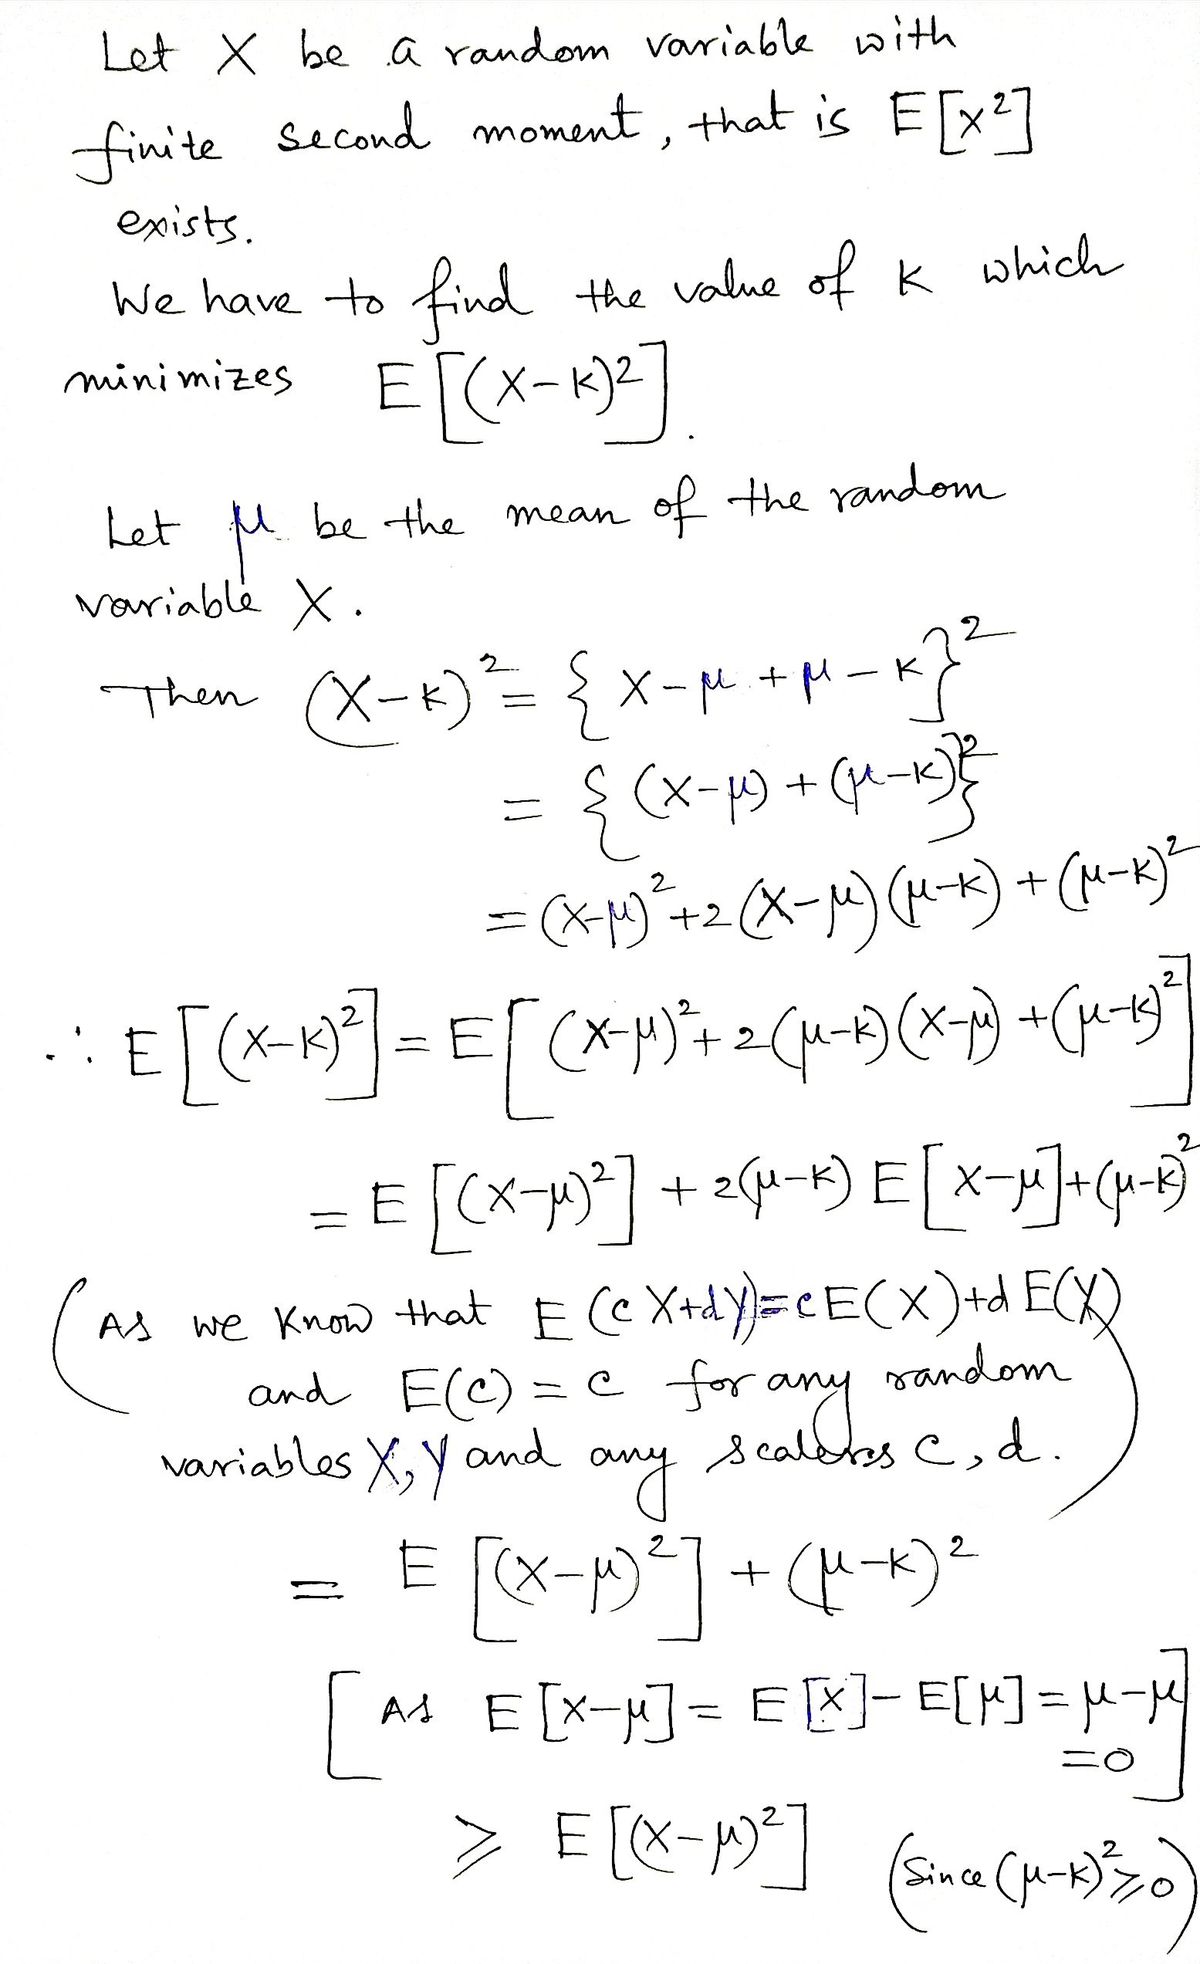 Let X be a random variable with
finite second moment, that is E[X²]
exists.
We have to find the value of K which
minimizes E[(X-K)²].
Let μ be the mean of the random
variable X.
Then (X-K)² = {X-μ+μ-K}²
= {(X-μ)+(μ-K)}²
= (X-μ)²+2(X-μ)(μ-K)+(μ-K)²
∴ E[(X-K)²] = E[(X-μ)²+2(μ-K)(X-μ)+(μ-K)²]
= E[(X-μ)²] + 2(μ-K) E[X-μ]+(μ-K)²
(As we know that E(cX+dY)=cE(X)+dE(Y)
and E(c) = c for any random
variables X, Y and any scalers c, d.)
= E[(X-μ)²] + (μ-K)²
[As E[X-μ] = E[X]-E[μ] = μ-μ
=0]
≥ E[(X-μ)²] (Since (μ-K)²≥0)